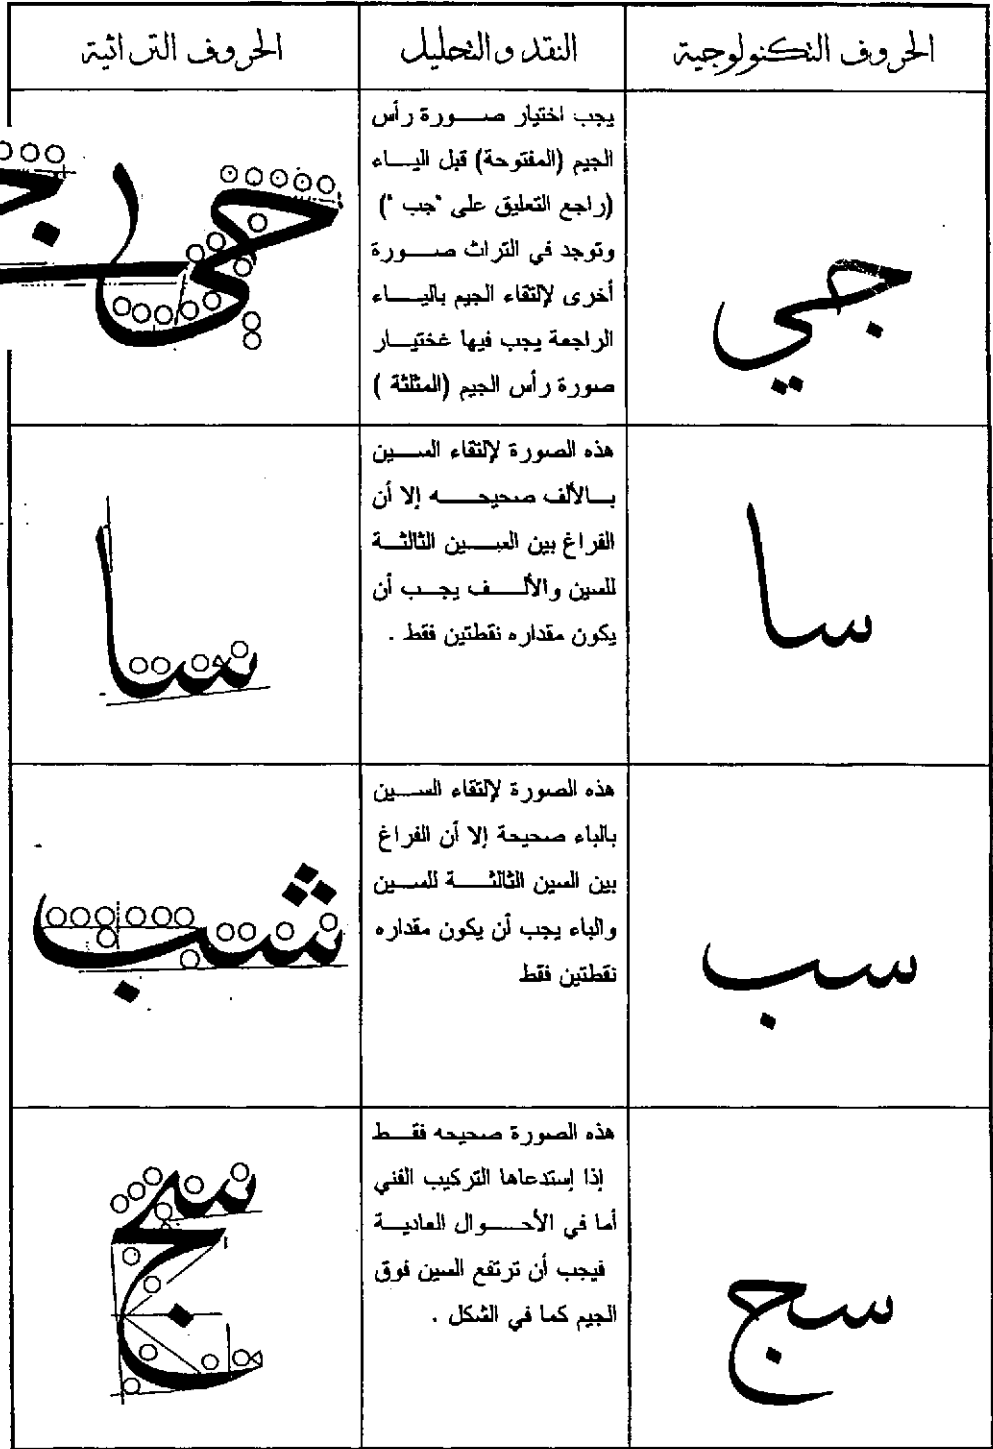 الحروف التكنولوجية
النقد والتحليل
الحروف التراثية
جي
يجب اختيار صورة رأس
الجيم (المفتوحة) قبل الياء
(راجع التعليق على "جب")
وتوجد في التراث صورة
أخرى لإلتقاء الجيم بالياء
الراجعة يجب فيها غختيار
صورة رأس الجيم (المثلثة )
سا
هذه الصورة لإلتقاء السين
بالألف صحيحه إلا أن
الفراغ بين السين الثالثة
للسين والألف يجب أن
يكون مقداره نقطتين فقط .
سا
سب
هذه الصورة لإلتقاء السين
بالباء صحيحة إلا أن الفراغ
بين السين الثالثة للسين
والباء يجب أن يكون مقداره
نقطتين فقط
شب
سج
هذه الصورة صحيحه فقط
إذا إستدعاها التركيب الفني
أما في الأحوال العادية
فيجب أن ترتفع السين فوق
الجيم كما في الشكل .
سج